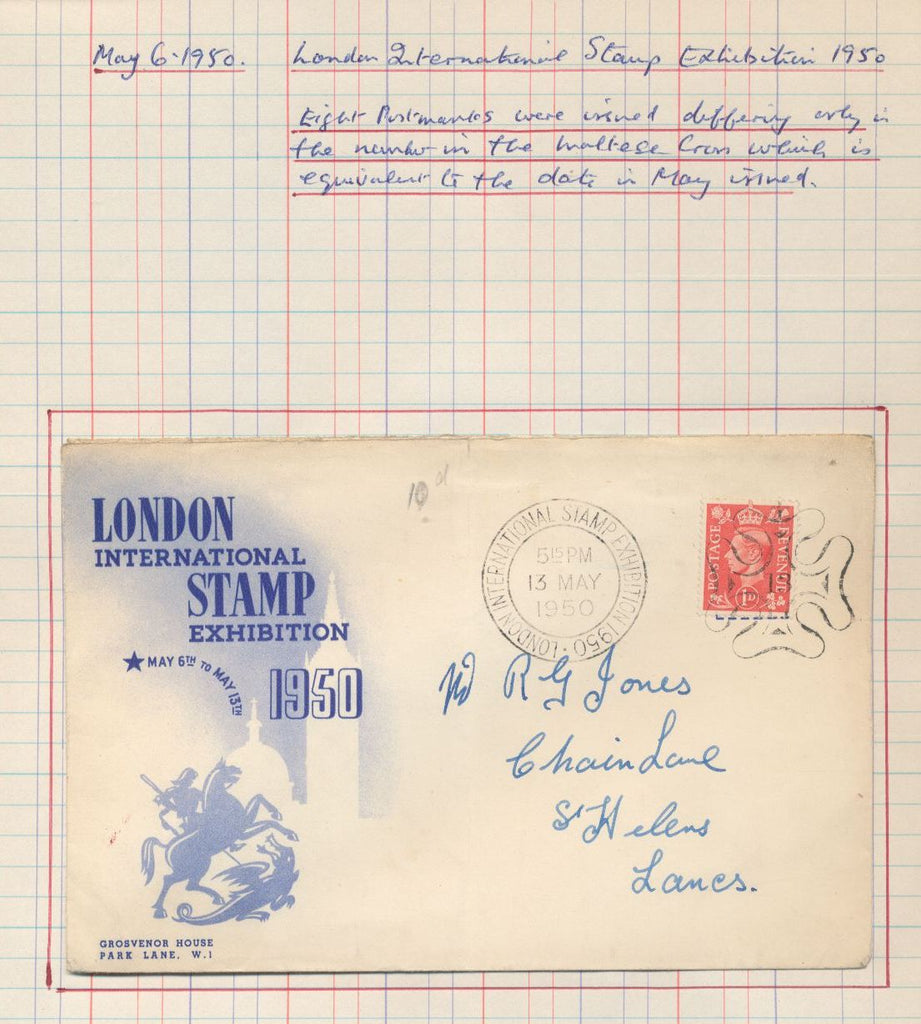 May 6 · 1950. London International Stamp Exhibition 1950
Eight Postmarks were issued differing only in
the number in the Maltese Cross which is
equivalent to the date in May issued.
10d
LONDON
INTERNATIONAL
STAMP
EXHIBITION
★ MAY 6TH TO MAY 13TH
1950
GROSVENOR HOUSE
PARK LANE, W.1
LONDON INTERNATIONAL STAMP EXHIBITION 1950 ·
5 15 PM
13 MAY
1950
POSTAGE
REVENUE
1D
13
R G Jones
Chain Lane
St Helens
Lancs.